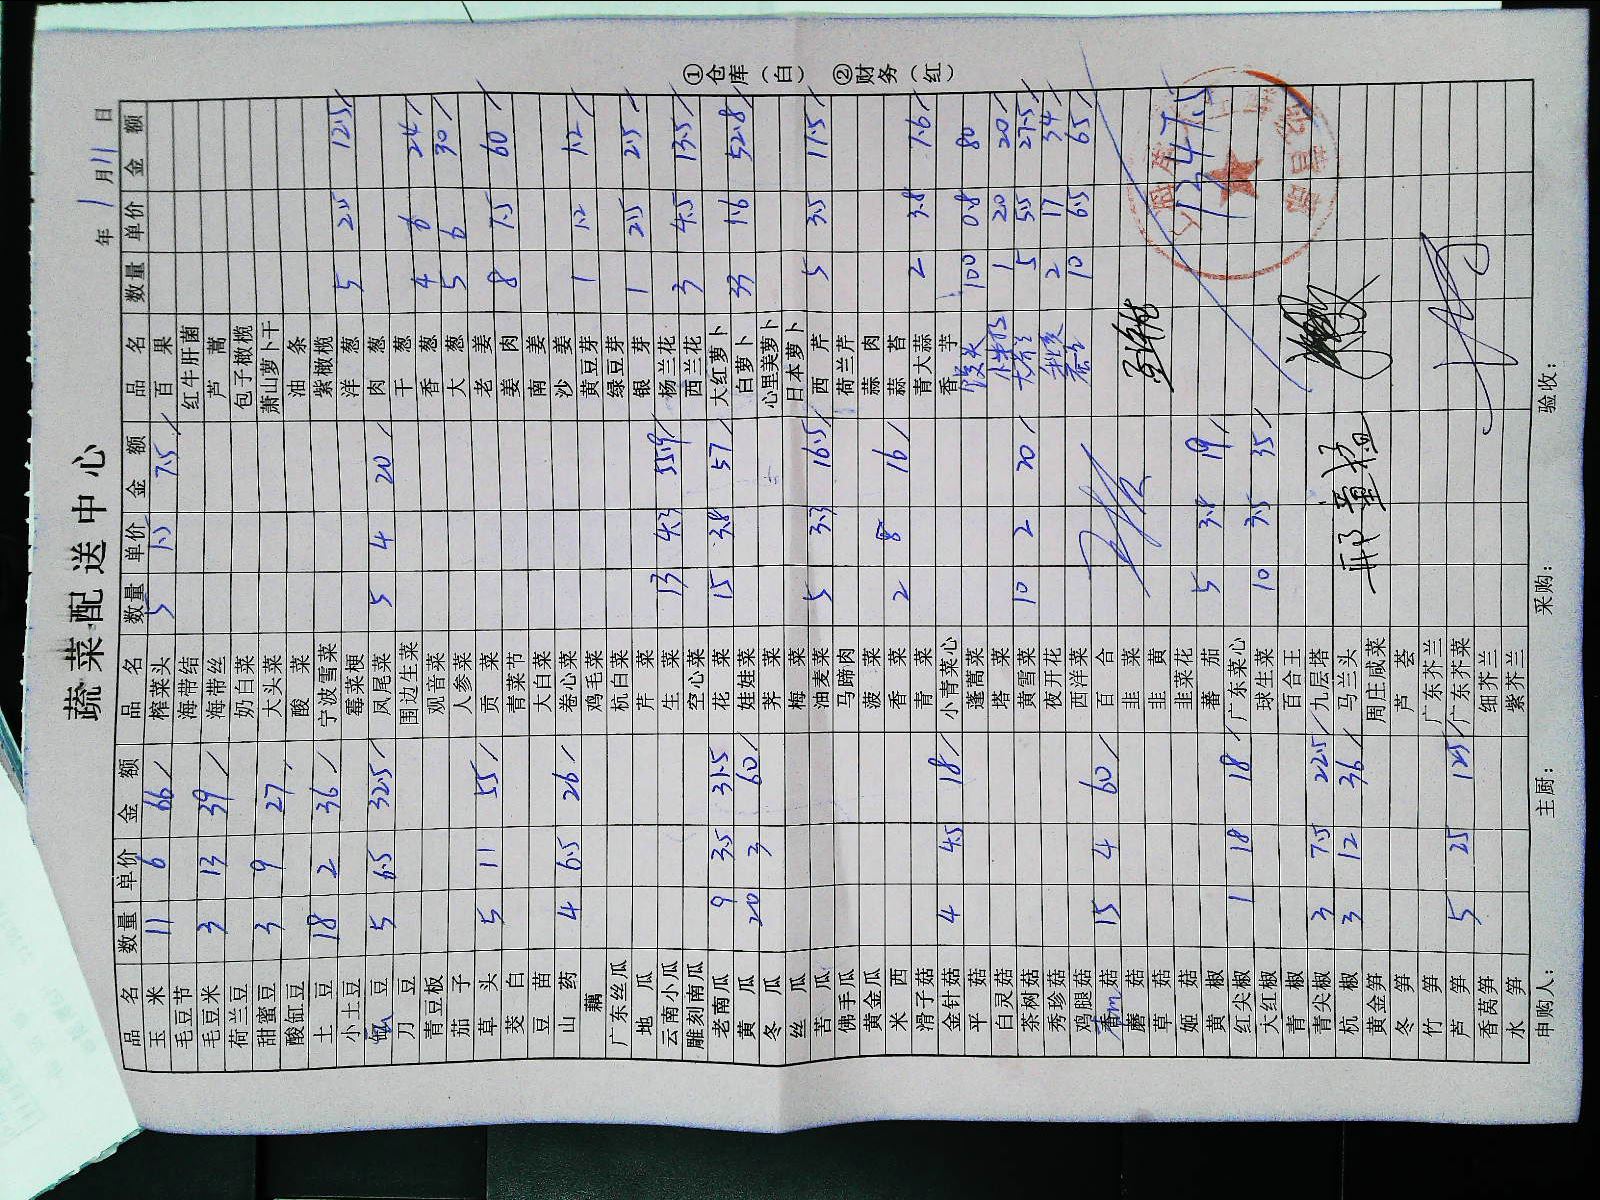 蔬菜配送中心
年 1 月 11 日
品名 数量 单价 金额 品名 数量 单价 金额 品名 数量 单价 金额
玉米 11 6 66 榨菜头 5 1.5 7.5 百果
毛豆节 海带结 红牛肝菌
毛豆米 3 13 39 海带丝 芦蒿
荷兰豆 奶白菜 包子橄榄
甜蜜豆 3 9 27 大头菜 萧山萝卜干
酸缸豆 酸菜 油条
土豆 18 2 36 宁波雪菜 紫橄榄
小土豆 霉菜梗 洋葱 5 2.5 12.5
缸豆 5 6.5 32.5 凤尾菜 5 4 20 肉葱
刀豆 围边生菜 干葱
青豆板 观音菜 香葱 4 6 24
茄子 人参菜 大葱 5 6 30
草头 5 11 55 贡菜 老姜
茭白 青菜节 姜肉 8 7.5 60
豆苗 大白菜 南姜
山药 4 6.5 26 卷心菜 沙姜
藕 鸡毛菜 黄豆芽 1 1.2 1.2
广东丝瓜 杭白菜 绿豆芽
地瓜 芹菜 银芽 1 2.5 2.5
云南小瓜 生菜 13 4.3 55.9 杨兰花
雕刻南瓜 空心菜 西兰花 3 4.5 13.5
老南瓜 9 3.5 31.5 花菜 15 3.8 57 大红萝卜
黄瓜 20 3 60 娃娃菜 白萝卜 33 1.6 52.8
冬瓜 荠菜 心里美萝卜
丝瓜 梅菜 日本萝卜
苦瓜 油麦菜 5 3.3 16.5 西芹 5 3.5 17.5
佛手瓜 马蹄肉 荷兰芹
黄金瓜 菠菜 蒜肉
米西 香菜 2 8 16 蒜苔
滑子菇 青菜 青大蒜 2 3.8 7.6
金针菇 4 4.5 18 小青菜心 香芋
平菇 蓬蒿菜 馒头 100 0.8 80
白灵菇 塔菜 1 20 20
茶树菇 黄雪菜 10 2 20 5 5.5 27.5
秀珍菇 夜开花 2 17 34
鸡腿菇 西洋菜 10 6.5 65
香菇 15 4 60 百合
蘑菇 韭菜
草菇 韭黄
姬菇 韭菜花
黄椒 蕃茄 5 3.8 19
红尖椒 1 18 18 广东菜心
大红椒 球生菜 10 3.5 35
青椒 百合王
青尖椒 3 7.5 22.5 九层塔
杭椒 3 12 36 马兰头
黄金笋 周庄咸菜
冬笋 芦荟
竹笋 广东芥兰
芦笋 5 25 125 广东芥菜
香莴笋 细芥兰
水笋 紫芥兰
1347.5
申购人： 主厨： 采购： 验收：
①仓库（白） ②财务（红）